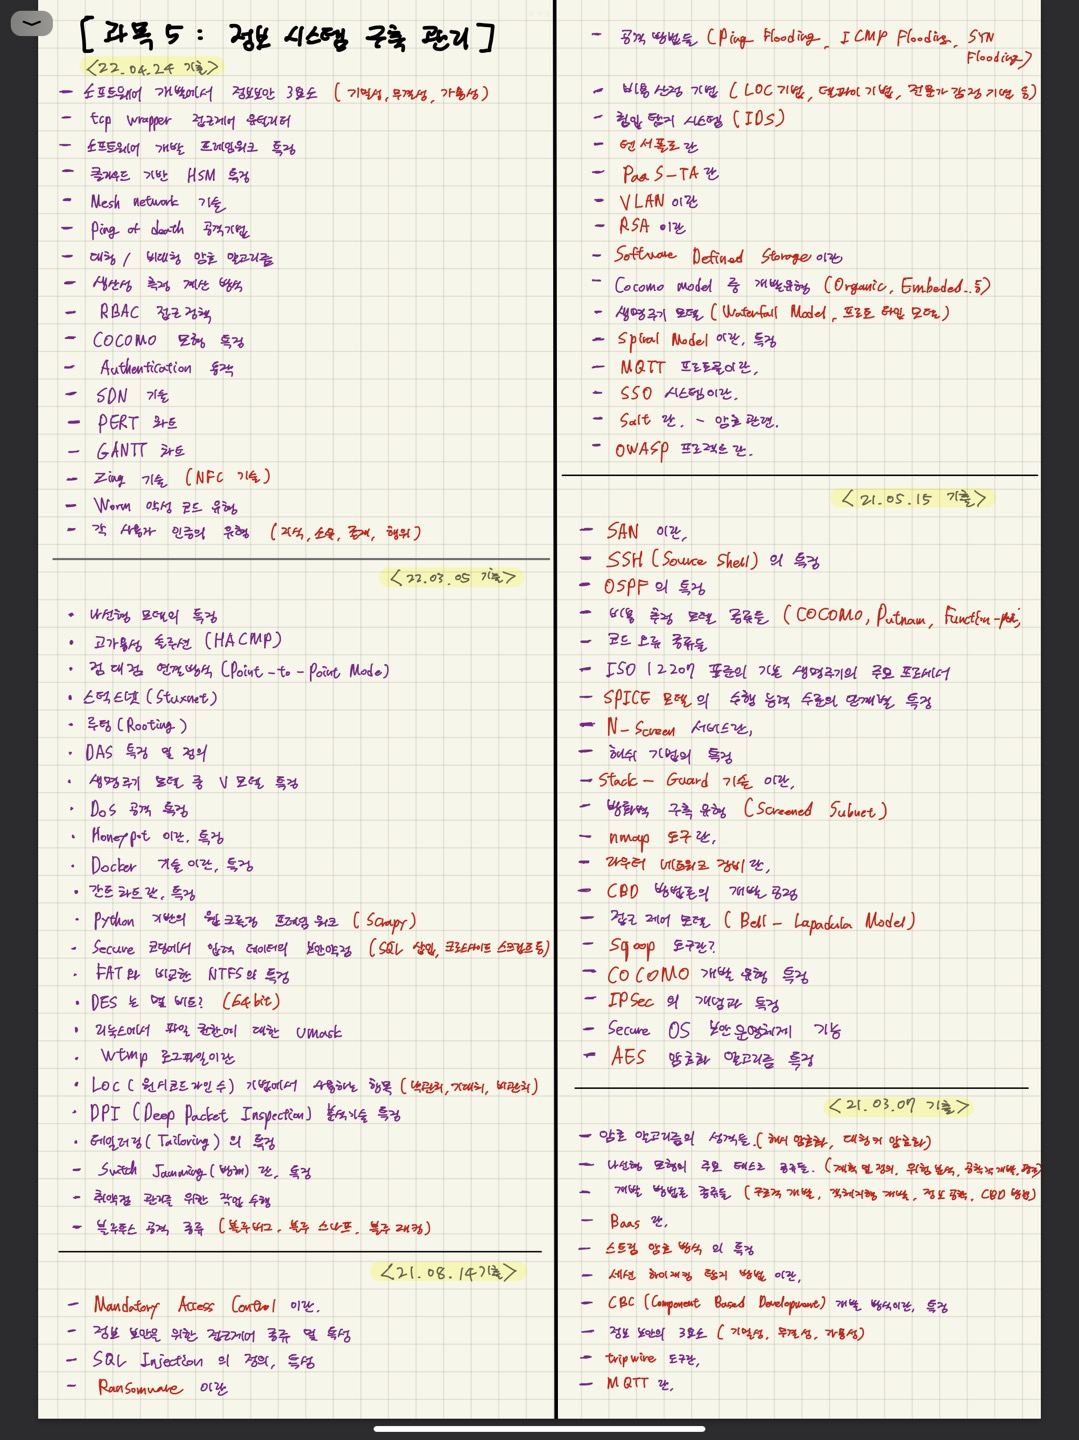 [ 과목 5 : 정보 시스템 구축 관리 ]
<22.04.24 기출>
- 소프트웨어 개발에서 정보보안 3요소 (기밀성, 무결성, 가용성)
- tcp wrapper 접근제어 유틸리티
- 소프트웨어 개발 프레임워크 특징
- 클라우드 기반 HSM 특징
- Mesh network 기술
- Ping of death 공격기법
- 대칭 / 비대칭 암호 알고리즘
- 생산성 측정 계산 방식
- RBAC 접근정책
- COCOMO 모형 특징
- Authentication 동작
- SDN 기술
- PERT 차트
- GANTT 차트
- Zing 기술 (NFC 기술)
- Worm 악성 코드 유형
- 각 사용자 인증의 유형 (지식, 소유, 존재, 행위)
<22.03.05 기출>
· 나선형 모델의 특징
· 고가용성 솔루션 (HACMP)
· 점 대 점 연결방식 (Point-to-Point Mode)
· 스턱스넷 (Stuxnet)
· 루팅 (Rooting)
· DAS 특징 및 정의
· 생명주기 모델 중 V 모델 특징
· DoS 공격 특징
· Honeypot 이란, 특징
· Docker 기술 이란, 특징
· 간트 차트란, 특징
· Python 기반의 웹 크롤링 프레임 워크 (Scrapy)
· Secure 코딩에서 입력 데이터의 보안약점 (SQL 삽입, 크로스사이트 스크립트 등)
· FAT와 비교한 NTFS의 특징
· DES 는 몇 비트? (64bit)
· 리눅스에서 파일 권한에 대한 umask
· wtmp 로그파일이란
· LOC (원시코드라인 수) 기법에서 사용하는 항목 (낙관치, 기대치, 비관치)
· DPI (Deep Packet Inspection) 분석기술 특징
· 테일러링 (Tailoring) 의 특징
- Switch Jamming (방해) 란, 특징
- 취약점 관리를 위한 작업 수행
- 블루투스 공격 종류 (블루버그, 블루 스나프, 블루 재킹)
<21.08.14 기출>
- Mandatory Access Control 이란.
- 정보 보안을 위한 접근제어 종류 및 특성
- SQL Injection 의 정의, 특성
- Ransomware 이란
- 공격 방법들 (Ping Flooding, ICMP Flooding, SYN
Flooding)
- 비용 산정 기법 (LOC 기법, 델파이 기법, 전문가 감정 기법 등)
- 침입 탐지 시스템 (IDS)
- 텐서플로란
- PaaS-TA 란
- VLAN 이란
- RSA 이란
- Software Defined Storage 이란
- Cocomo model 중 개발유형 (Organic, Embeded.. 등)
- 생명주기 모델 (Waterfall Model, 프로토 타입 모델)
- Spiral Model 이란, 특징
- MQTT 프로토콜이란,
- SSO 시스템이란.
- Salt 란. - 암호 관련.
- OWASP 프로젝트란.
<21.05.15 기출>
- SAN 이란,
- SSH (Source Shell) 의 특징
- OSPF 의 특징
- 비용 추정 모델 종류들 (COCOMO, Putnam, Function-pt)
- 코드 오류 종류들
- ISO 12207 표준의 기본 생명주기의 주요 프로세서
- SPICE 모델의 수행 능력 수준의 단계별 특징
- N-Screen 서비스란,
- 해쉬 기법의 특징
- Stack-Guard 기술 이란,
- 방화벽 구축 유형 (Screened Subnet)
- nmap 도구란,
- 라우터 네트워크 장비란,
- CBD 방법론의 개발 공정
- 접근 제어 모델 (Bell-Lapadula Model)
- Sqoop 도구란?
- COCOMO 개발 유형 특징
- IPSec 의 개념과 특징
- Secure OS 보안운영체제 기능
- AES 암호화 알고리즘 특징
<21.03.07 기출>
- 암호 알고리즘의 성격들 (해시 암호화, 대칭키 암호화)
- 나선형 모형의 주요 태스크 종류들. (계획 및 정의, 위험 분석, 공학적 개발, 평가)
- 개발 방법론 종류들 (구조적 개발, 객체지향 개발, 정보 공학, CBD 방법)
- Baas 란,
- 스트림 암호 방식 의 특징
- 세션 하이재킹 탐지 방법 이란,
- CBC (Component Based Development) 개발 방식이란, 특징
- 정보 보안의 3요소 (기밀성, 무결성, 가용성)
- tripwire 도구란,
- MQTT 란,